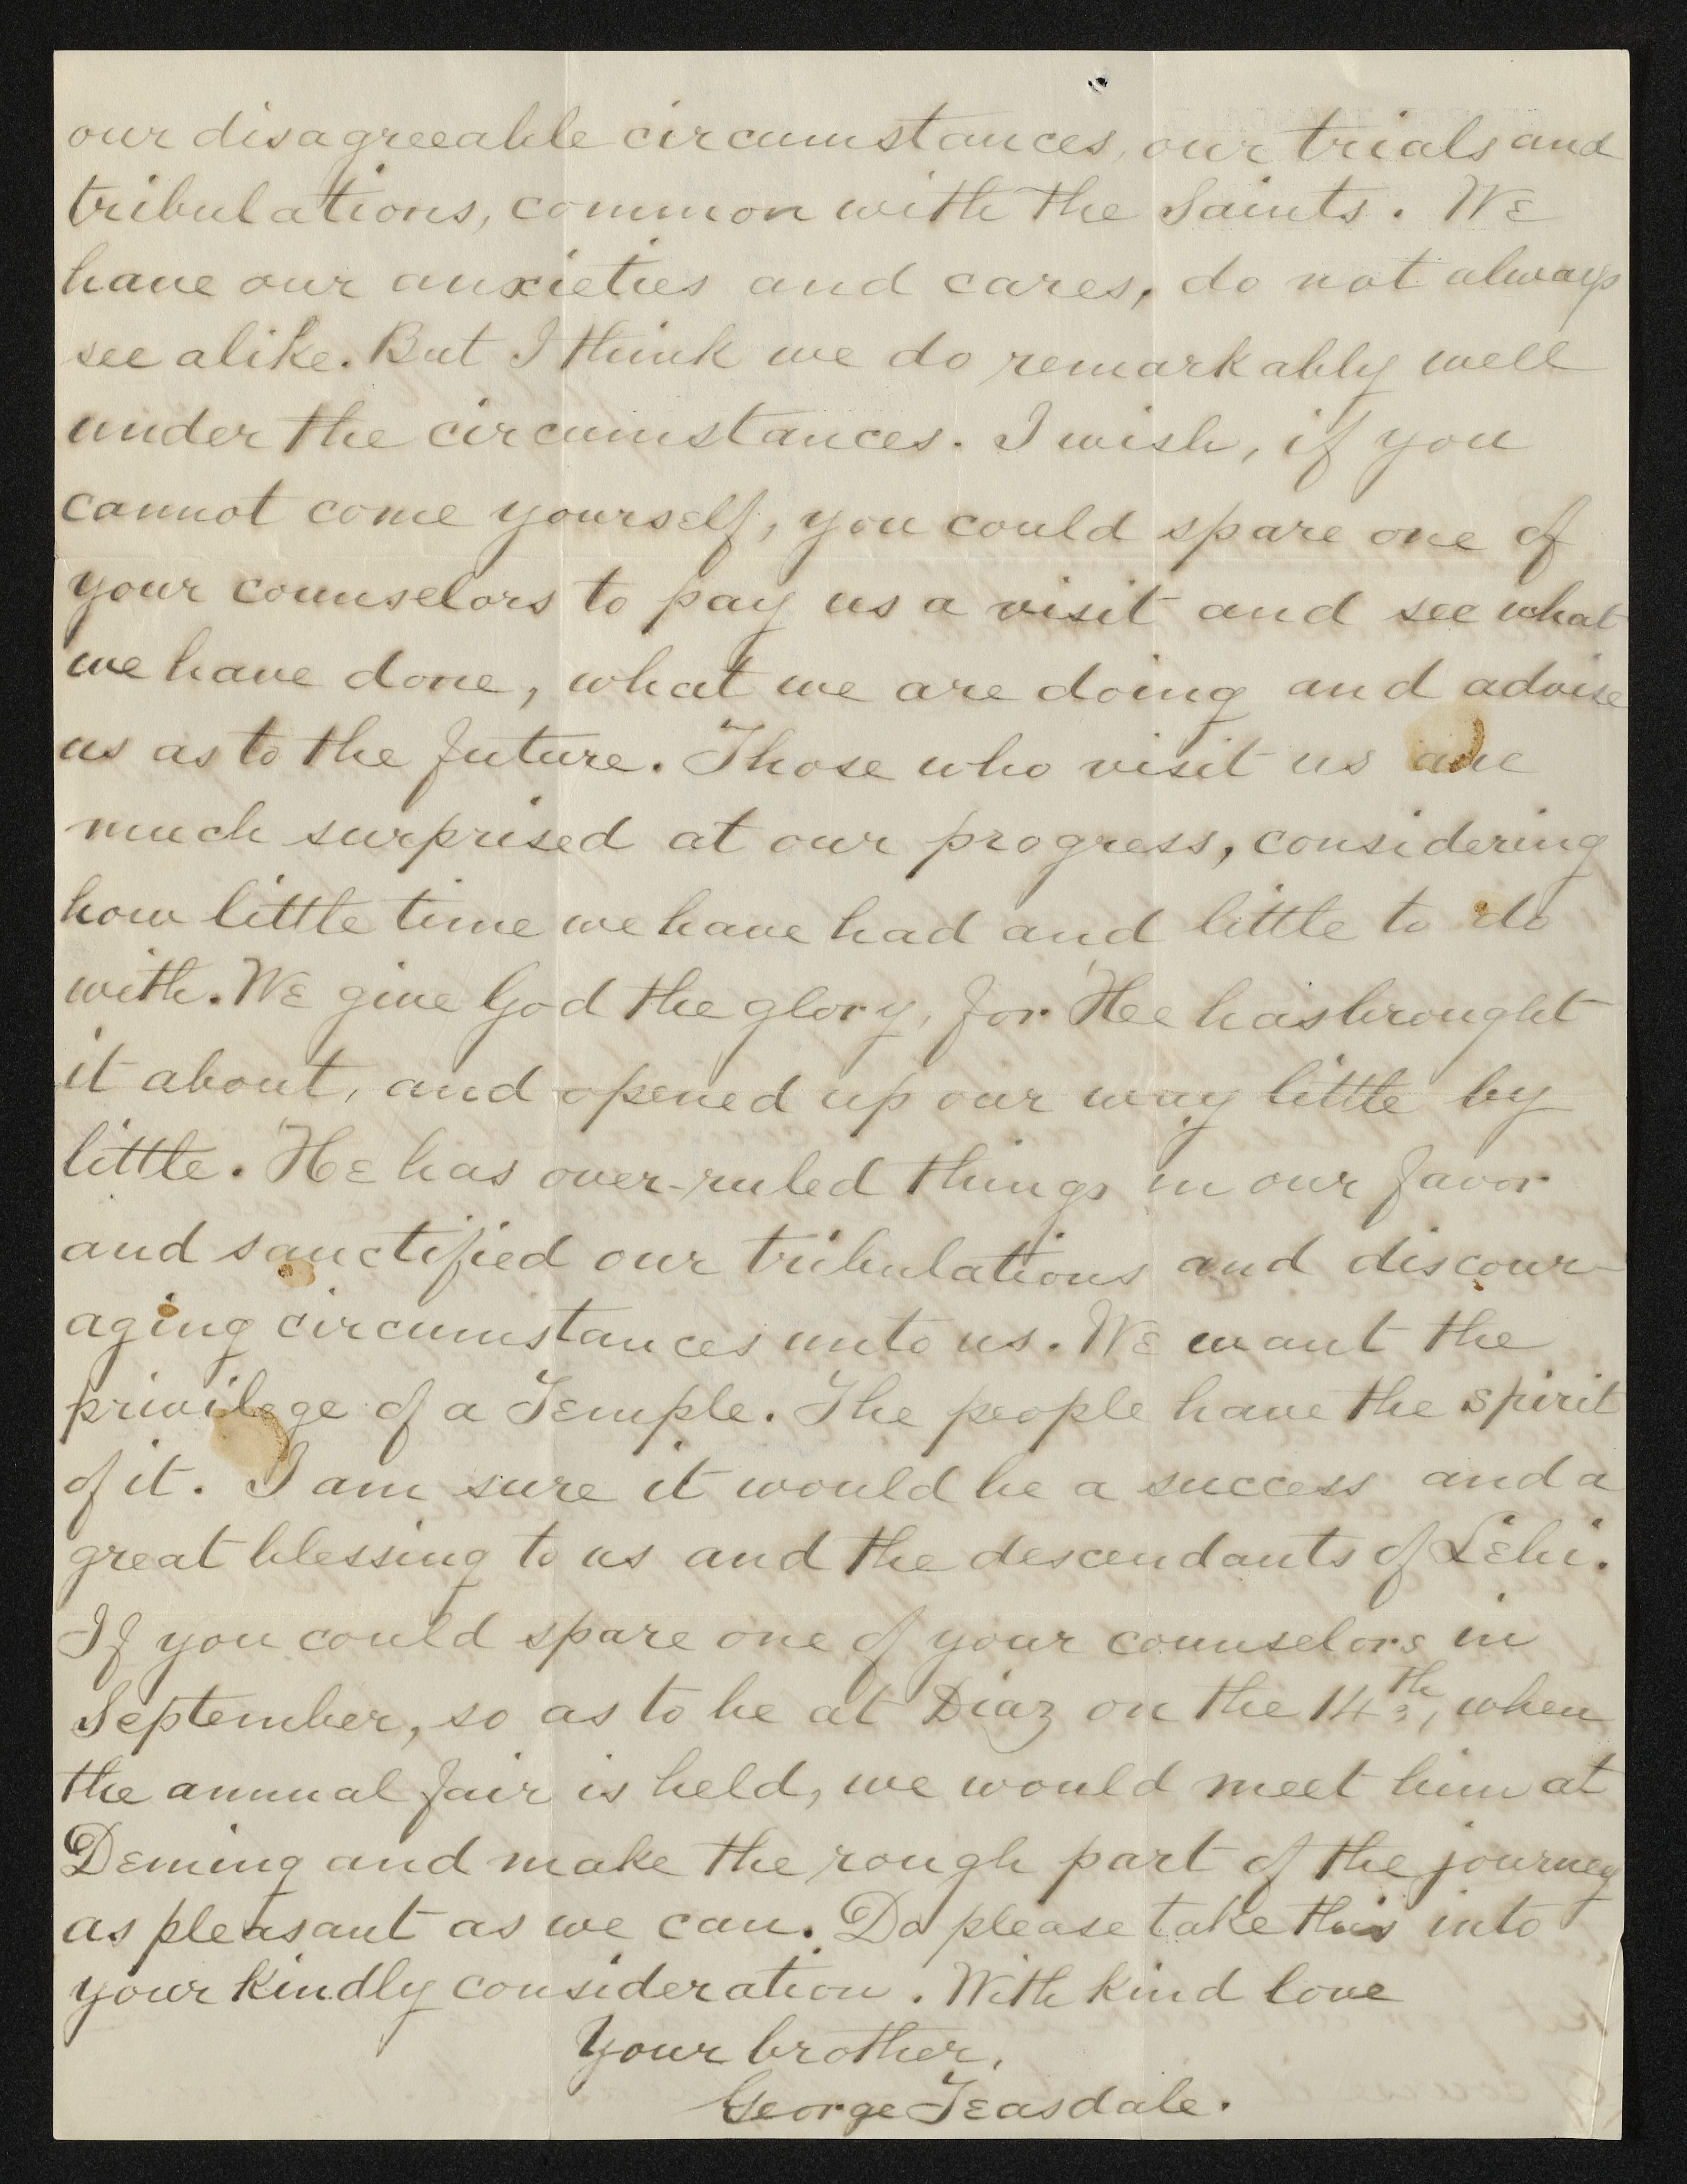 our disagreeable circumstances, our trials and
tribulations, common with the Saints. We
have our anxieties and cares, do not always
see alike. But I think we do remarkably well
under the circumstances. I wish, if you
cannot come yourself, you could spare one of
your counselors to pay us a visit and see what
we have done, what we are doing and advise
us as to the future. Those who visit us are
much surprised at our progress, considering
how little time we have had and little to do
with. We give God the glory, for He has brought
it about, and opened up our way little by
little. He has over-ruled things in our favor
and sanctified our tribulations and discour-
aging circumstances unto us. We want the
privilege of a Temple. The people have the spirit
of it. I am sure it would be a success and a
great blessing to us and the descendants of Lehi.
If you could spare one of your counselors in
September, so as to be at Diaz on the 14th, when
the annual fair is held, we would meet him at
Deming and make the rough part of the journey
as pleasant as we can. Do please take this into
your kindly consideration. With kind love
Your brother,
George Teasdale.